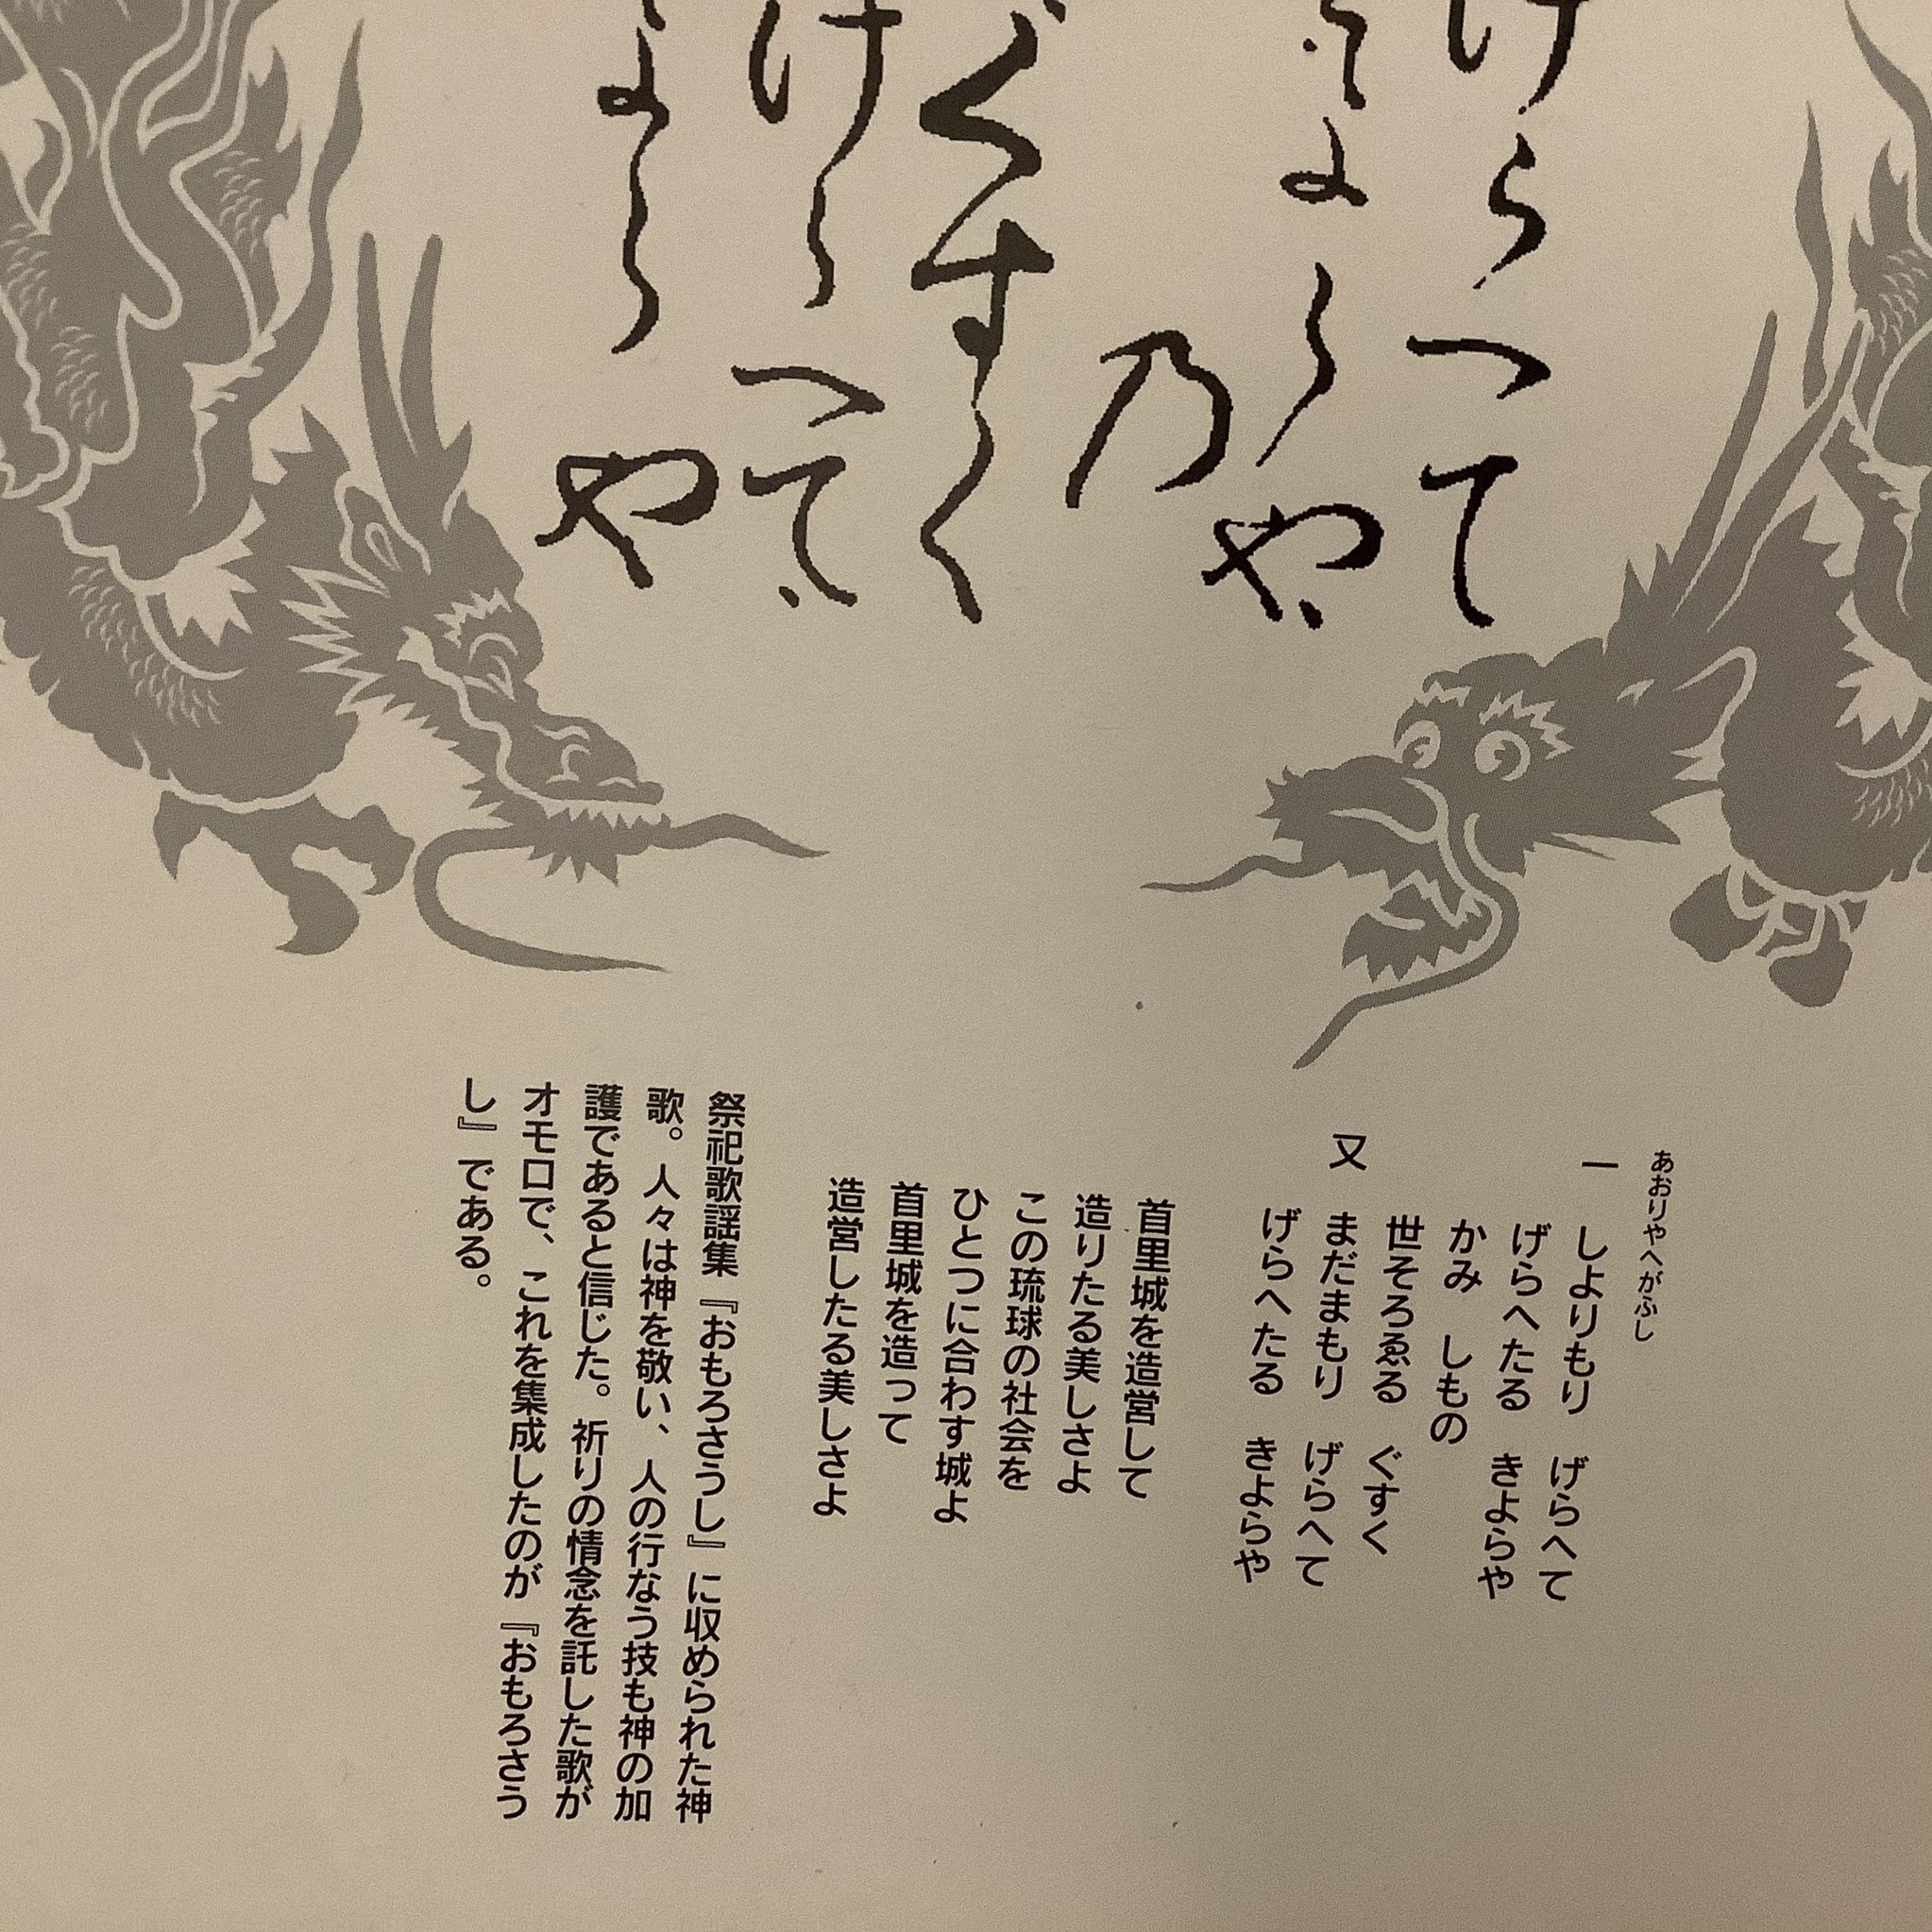 けらへて
よらや
乃
ぐすく
けらへて
よらや
あおりやへがふし
一 しよりもり げらへて
げらへたる きよらや
かみ しもの
世そろゑる ぐすく
又 まだまもり げらへて
げらへたる きよらや
首里城を造営して
造りたる美しさよ
この琉球の社会を
ひとつに合わす城よ
首里城を造って
造営したる美しさよ
祭祀歌謡集『おもろさうし』に収められた神
歌。人々は神を敬い、人の行なう技も神の加
護であると信じた。祈りの情念を託した歌が
オモロで、これを集成したのが『おもろさう
し』である。